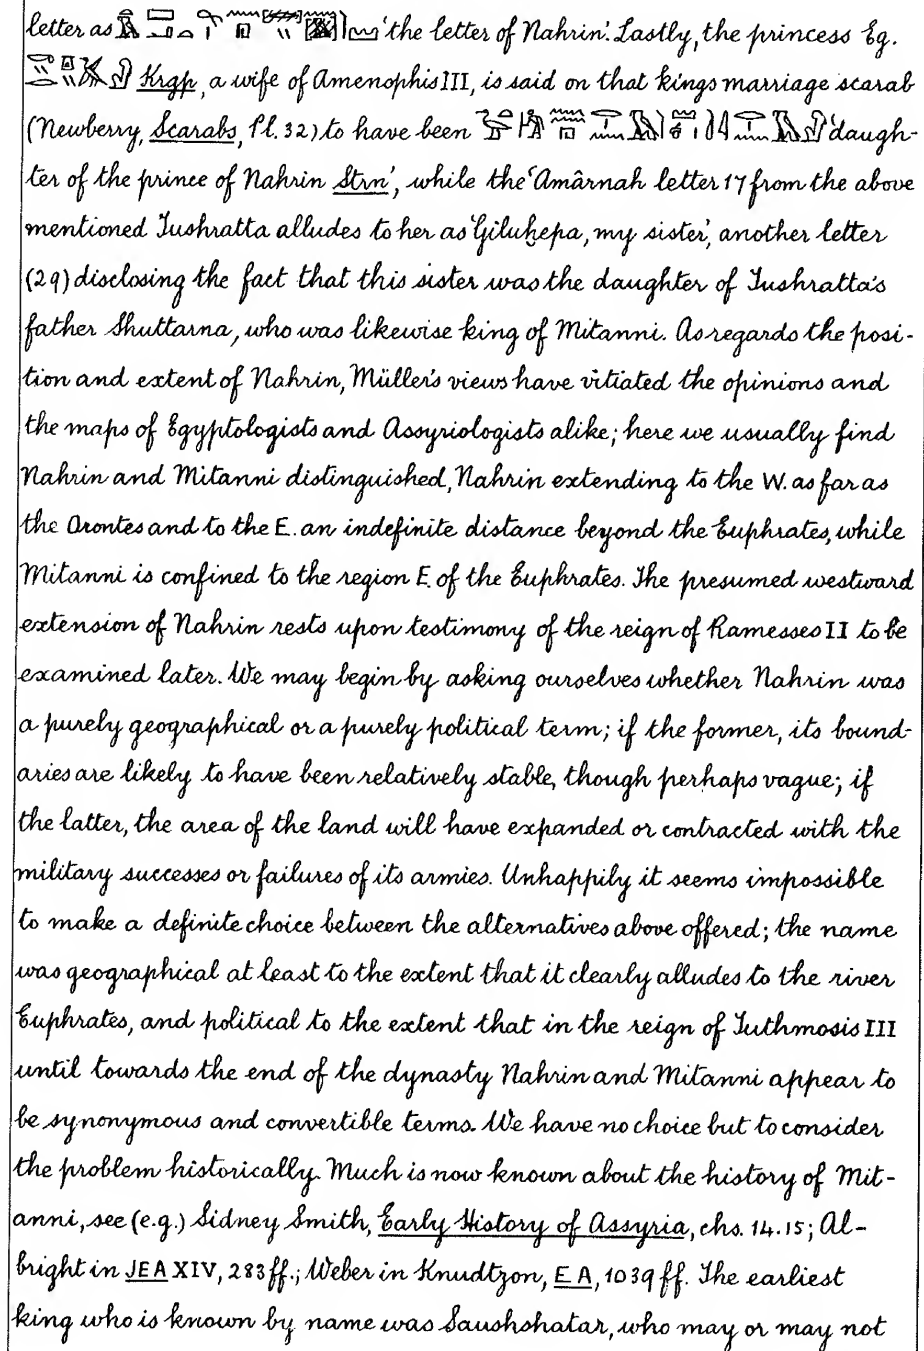 letter as 'the letter of Nahrin'. Lastly, the princess Eg.
Krgp, a wife of Amenophis III, is said on that kings marriage scarab
(Newberry, Scarabs, Pl. 32) to have been 'daugh-
ter of the prince of Nahrin Strn', while the 'Amârnah letter 17 from the above
mentioned Tushratta alludes to her as 'Giluḫepa, my sister', another letter
(29) disclosing the fact that this sister was the daughter of Tushratta's
father Shuttarna, who was likewise king of Mitanni. As regards the posi-
tion and extent of Nahrin, Müller's views have vitiated the opinions and
the maps of Egyptologists and Assyriologists alike; here we usually find
Nahrin and Mitanni distinguished, Nahrin extending to the W. as far as
the Orontes and to the E. an indefinite distance beyond the Euphrates, while
Mitanni is confined to the region E. of the Euphrates. The presumed westward
extension of Nahrin rests upon testimony of the reign of Ramesses II to be
examined later. We may begin by asking ourselves whether Nahrin was
a purely geographical or a purely political term; if the former, its bound-
aries are likely to have been relatively stable, though perhaps vague; if
the latter, the area of the land will have expanded or contracted with the
military successes or failures of its armies. Unhappily it seems impossible
to make a definite choice between the alternatives above offered; the name
was geographical at least to the extent that it clearly alludes to the river
Euphrates, and political to the extent that in the reign of Tuthmosis III
until towards the end of the dynasty Nahrin and Mitanni appear to
be synonymous and convertible terms. We have no choice but to consider
the problem historically. Much is now known about the history of Mit-
anni, see (e.g.) Sidney Smith, Early History of Assyria, chs. 14. 15; Al-
bright in JEA XIV, 283 ff.; Weber in Knudtzon, EA, 1039 ff. The earliest
king who is known by name was Saushshatar, who may or may not